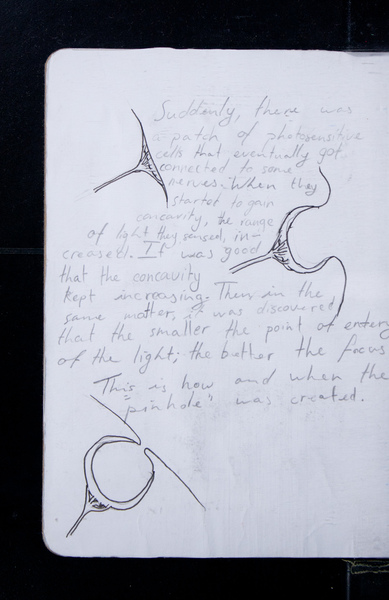 Suddenly, there was
a patch of photosensitive
cells that eventually got
connected to some
nerves. When they
started to gain
concavity, the range
of light they sensed, in-
creased. It was good
that the concavity
kept increasing. Then in the
same matter, it was discovered
that the smaller the point of entery
of the light; the better the focus
This is how and when the
"pinhole" was created.